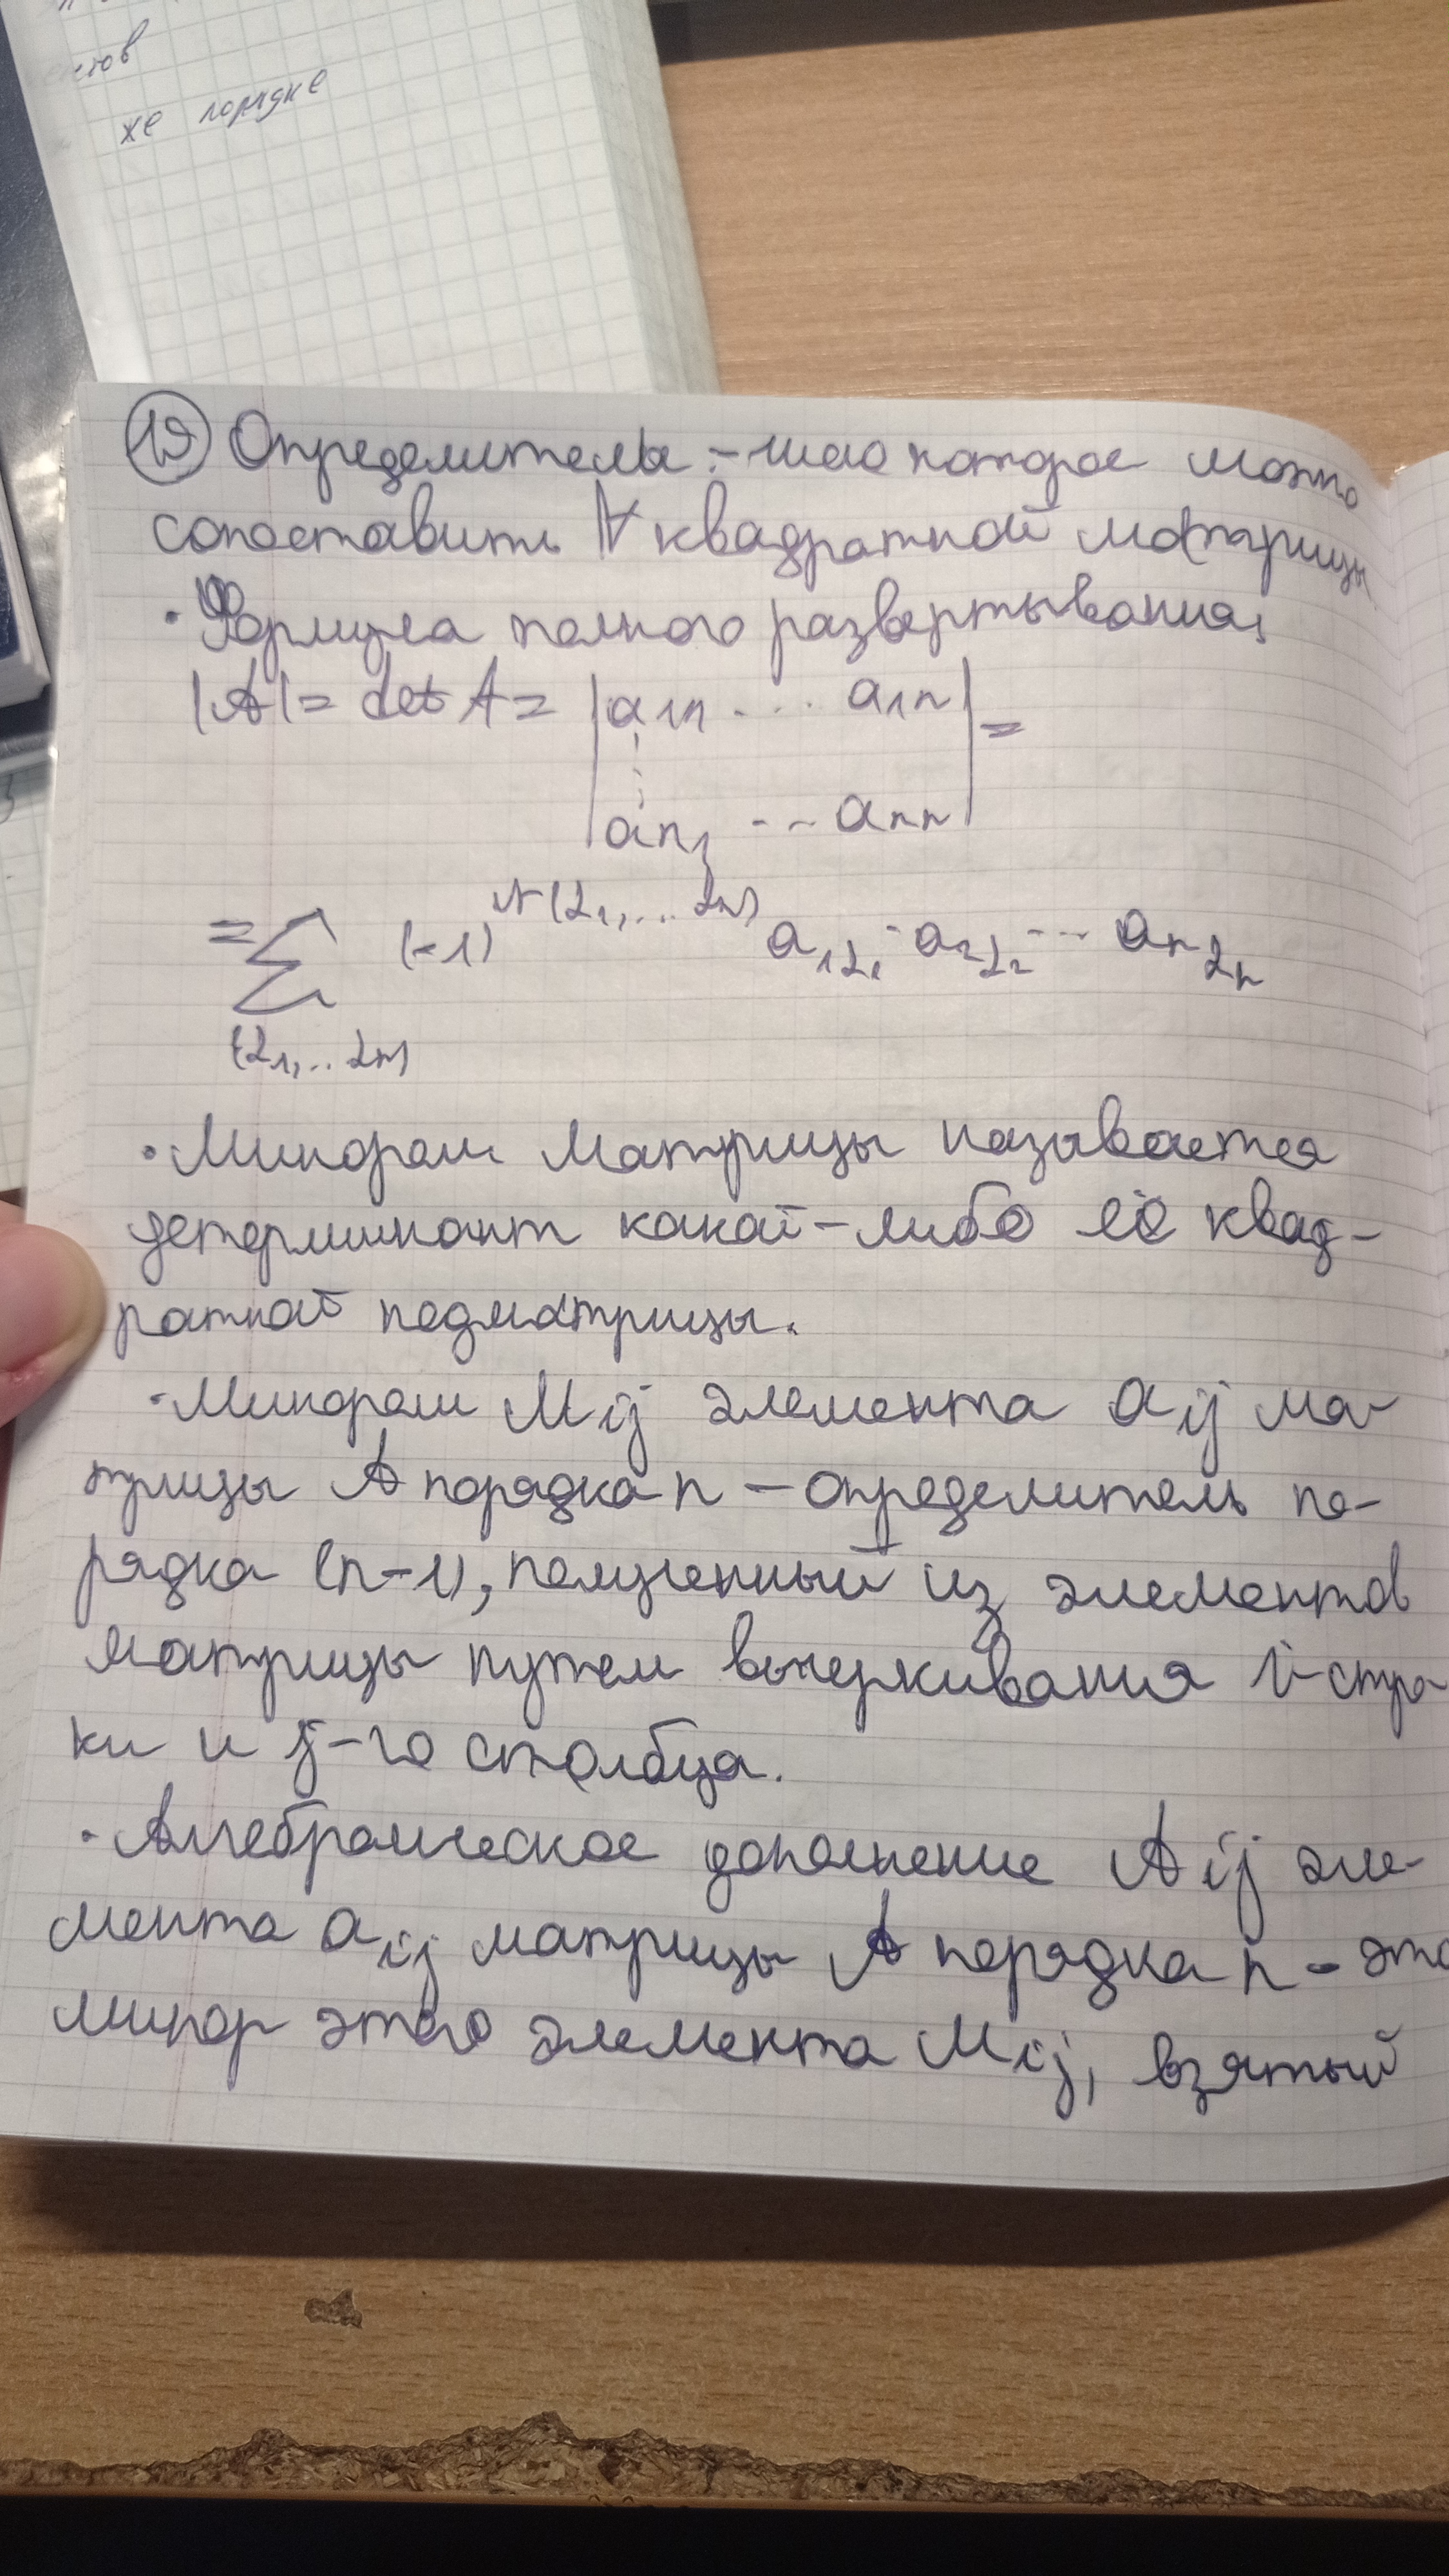 же порядке
(19) Определитель - число которое можно
сопоставить ∀ квадратной матрицы
· Формула полного развертывания:
|A| = det A = |a1n ... a1n| =
an1 ... ann
= ∑ (-1)^N(α1,...αn) a1α1 · a2α2 ... anαn
(α1,...αn)
· Минором матрицы называется
детерминант какой-либо её квад-
ратной подматрицы.
· Минором Mij элемента aij ма-
трицы A порядка n - определитель по-
рядка (n-1), полученный из элементов
матрицы путем вычеркивания i-стро
ки и j-го столбца.
· Алгебраическое дополнение Aij эле-
мента aij матрицы A порядка n - это
минор этого элемента Mij, взятый